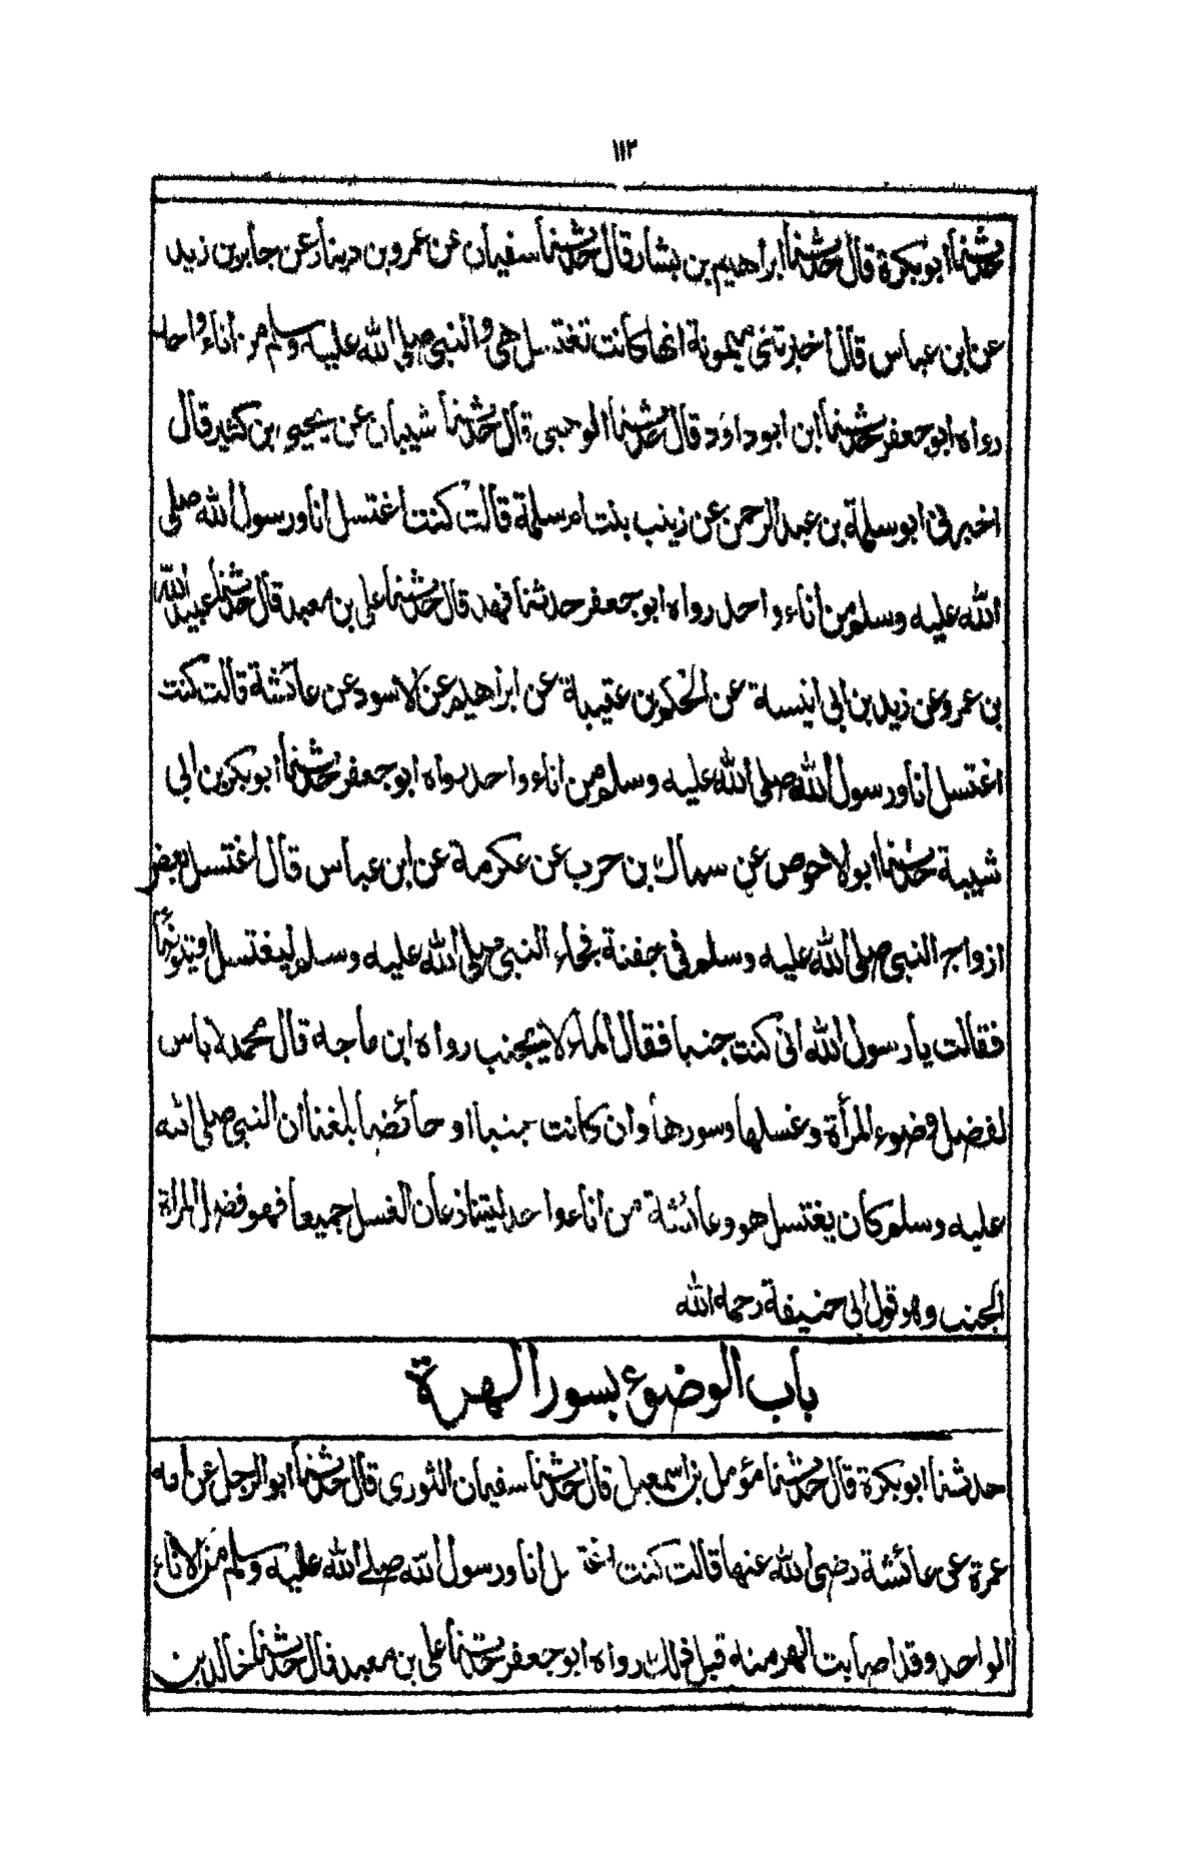 ١١٣
حدثنا ابو بكرة قال حدثنا ابراهيم بن بشار قال حدثنا سفيان عن عمرو بن دينار عن جابر بن زيد
عن ابن عباس قال اخبرتنى ميمونة انها كانت تغتسل هى والنبى صلى الله عليه وسلم من اناء واحد
رواه ابو جعفر حدثنا ابن ابو داؤد قال حدثنا الوحبى قال حدثنا شيبان عن يحيى بن كثير قال
اخبرنى ابو سلمة بن عبد الرحمن عن زينب بنت ام سلمة قالت كنت اغتسل انا ورسول الله صلى
الله عليه وسلم من اناء واحد رواه ابو جعفر حدثنا فهد قال حدثنا على بن معبد قال حدثنا عبيد الله
بن عمرو عن زيد بن ابى انيسة عن الحكم بن عقيبة عن ابراهيم عن الاسود عن عائشة قالت كنت
اغتسل انا ورسول الله صلى الله عليه وسلم من اناء واحد رواه ابو جعفر حدثنا ابو بكر بن ابى
شيبة حدثنا ابو لاحوص عن سماك بن حرب عن عكرمة عن ابن عباس قال اغتسل بعض
ازواج النبى صلى الله عليه وسلم فى جفنة فجاء النبى صلى الله عليه وسلم ليغتسل او يتوضأ
فقالت يا رسول الله انى كنت جنبا فقال الماء لا يجنب رواه ابن ماجه قال محمد لا باس
لفضل وضوء المرأة وغسلها وسورها وان كانت جنبا او حائضا بلغنا ان النبى صلى الله
عليه وسلم كان يغتسل هو وعائشة من اناء واحد ليتنازعان الغسل جميعا فهو فضل المراة
الجنب وهو قول ابى حنيفة رحمه الله
باب الوضوع بسور الهرة
حدثنا ابو بكرة قال حدثنا مؤمل بن اسمعيل قال حدثنا سفيان الثورى قال حدثنا ابو الرجل عن امه
عمرة عن عائشة رضى الله عنها قالت كنت اغتسل انا ورسول الله صلى الله عليه وسلم من الاناء
الواحد وقد اصابت الهر منه قبل ذلك رواه ابو جعفر حدثنا على بن معبد قال حدثنا خالد بن